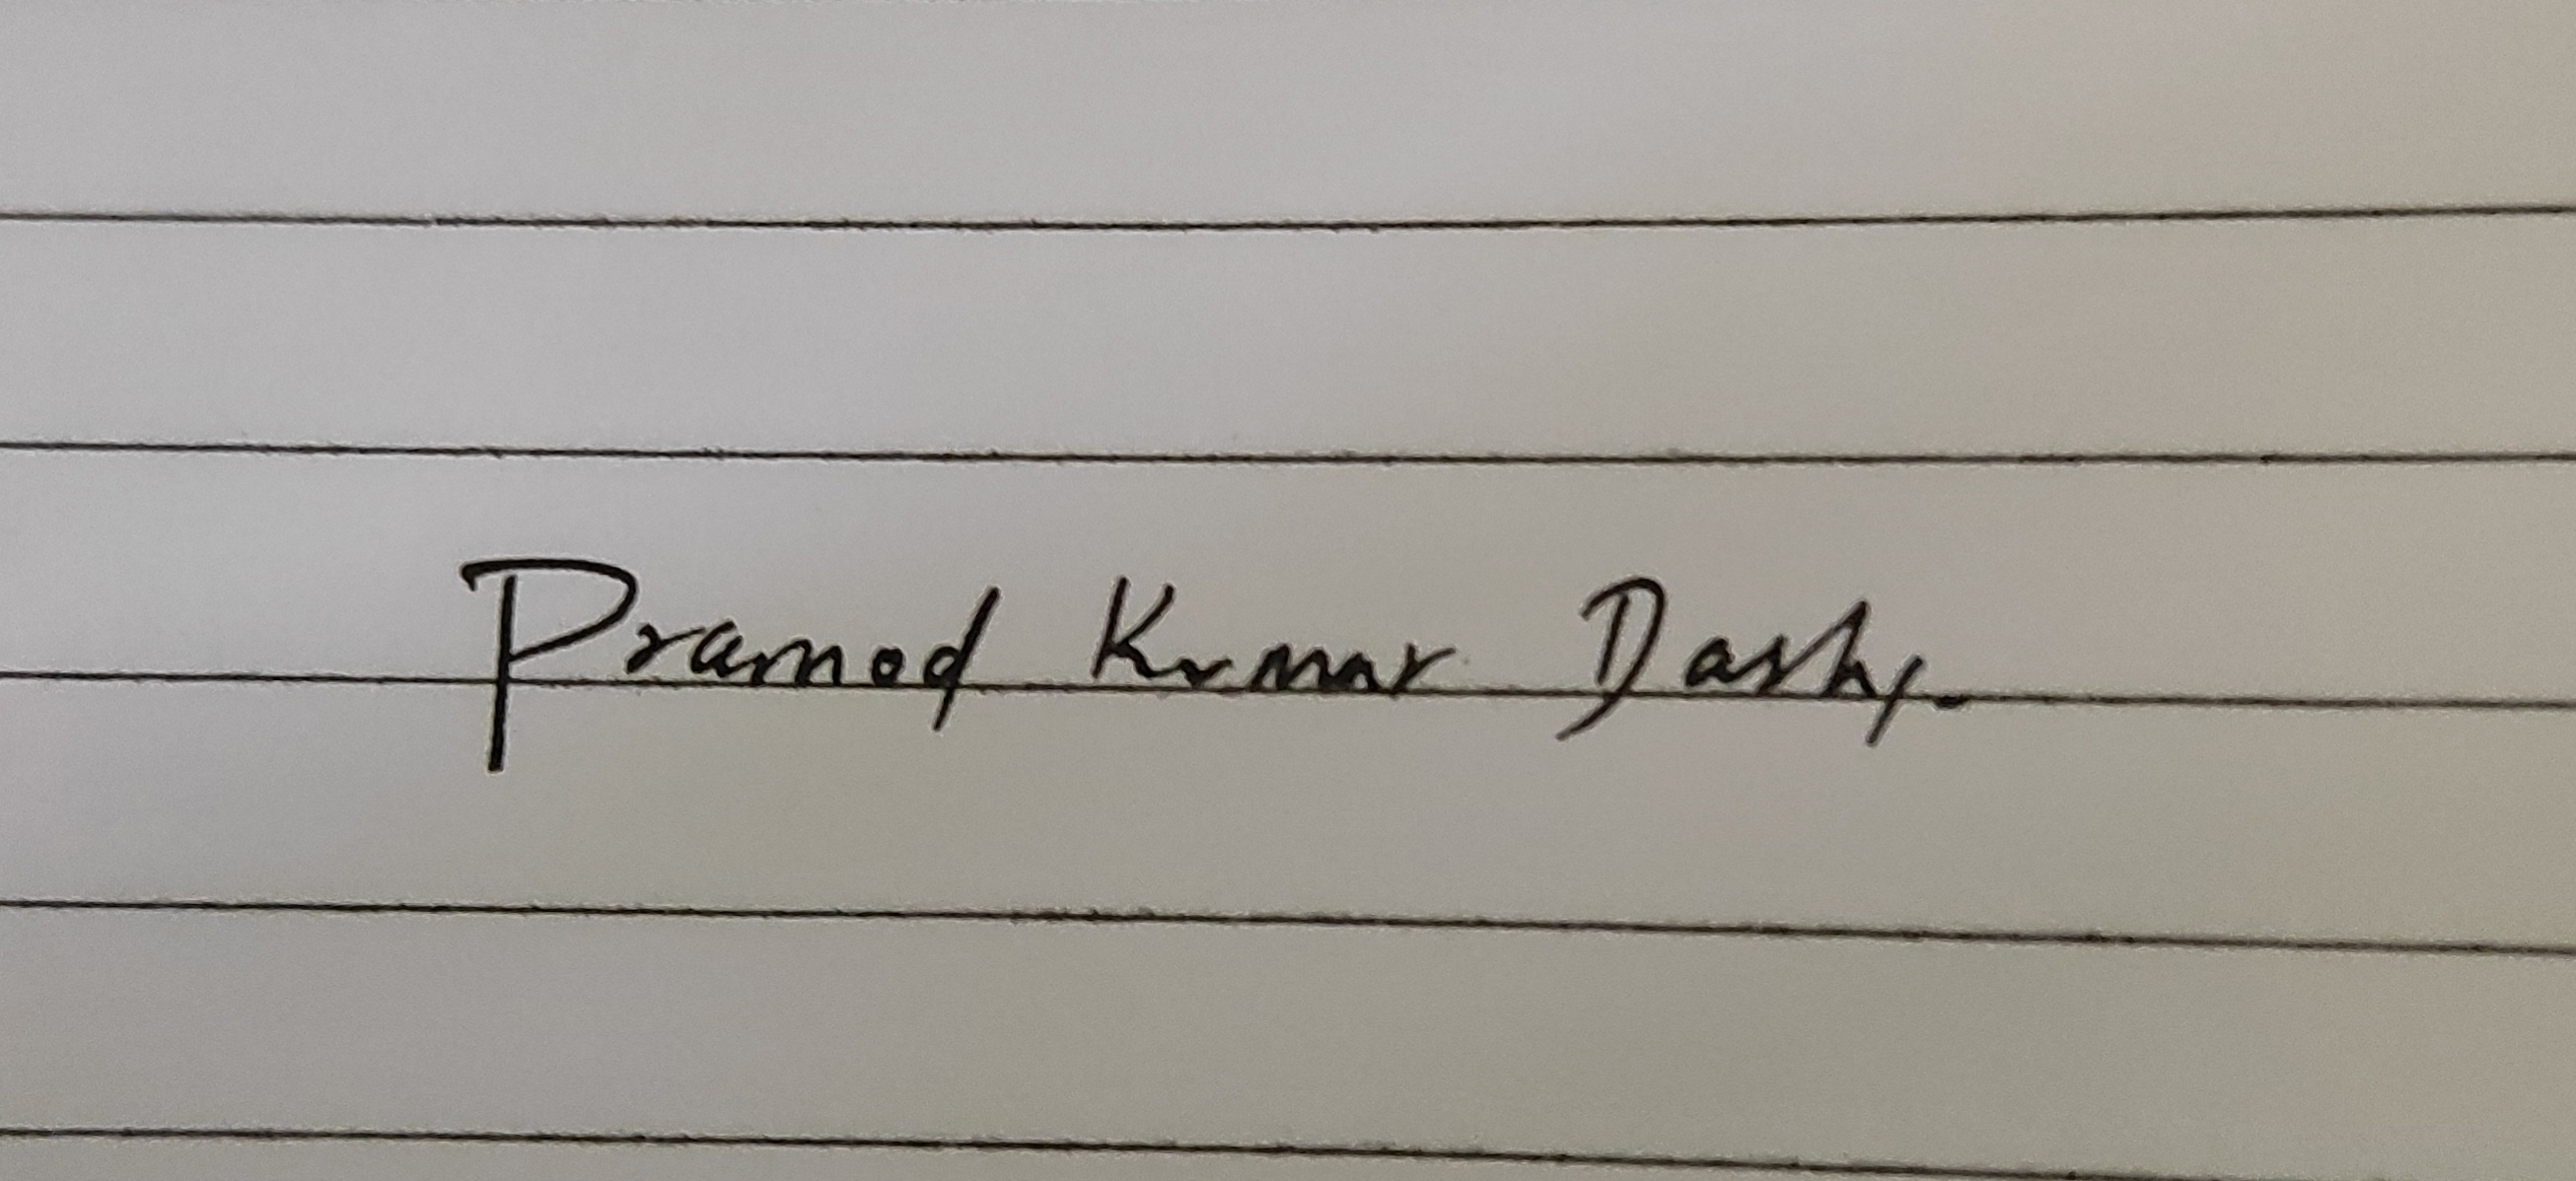 Pramod Kumar Dash.